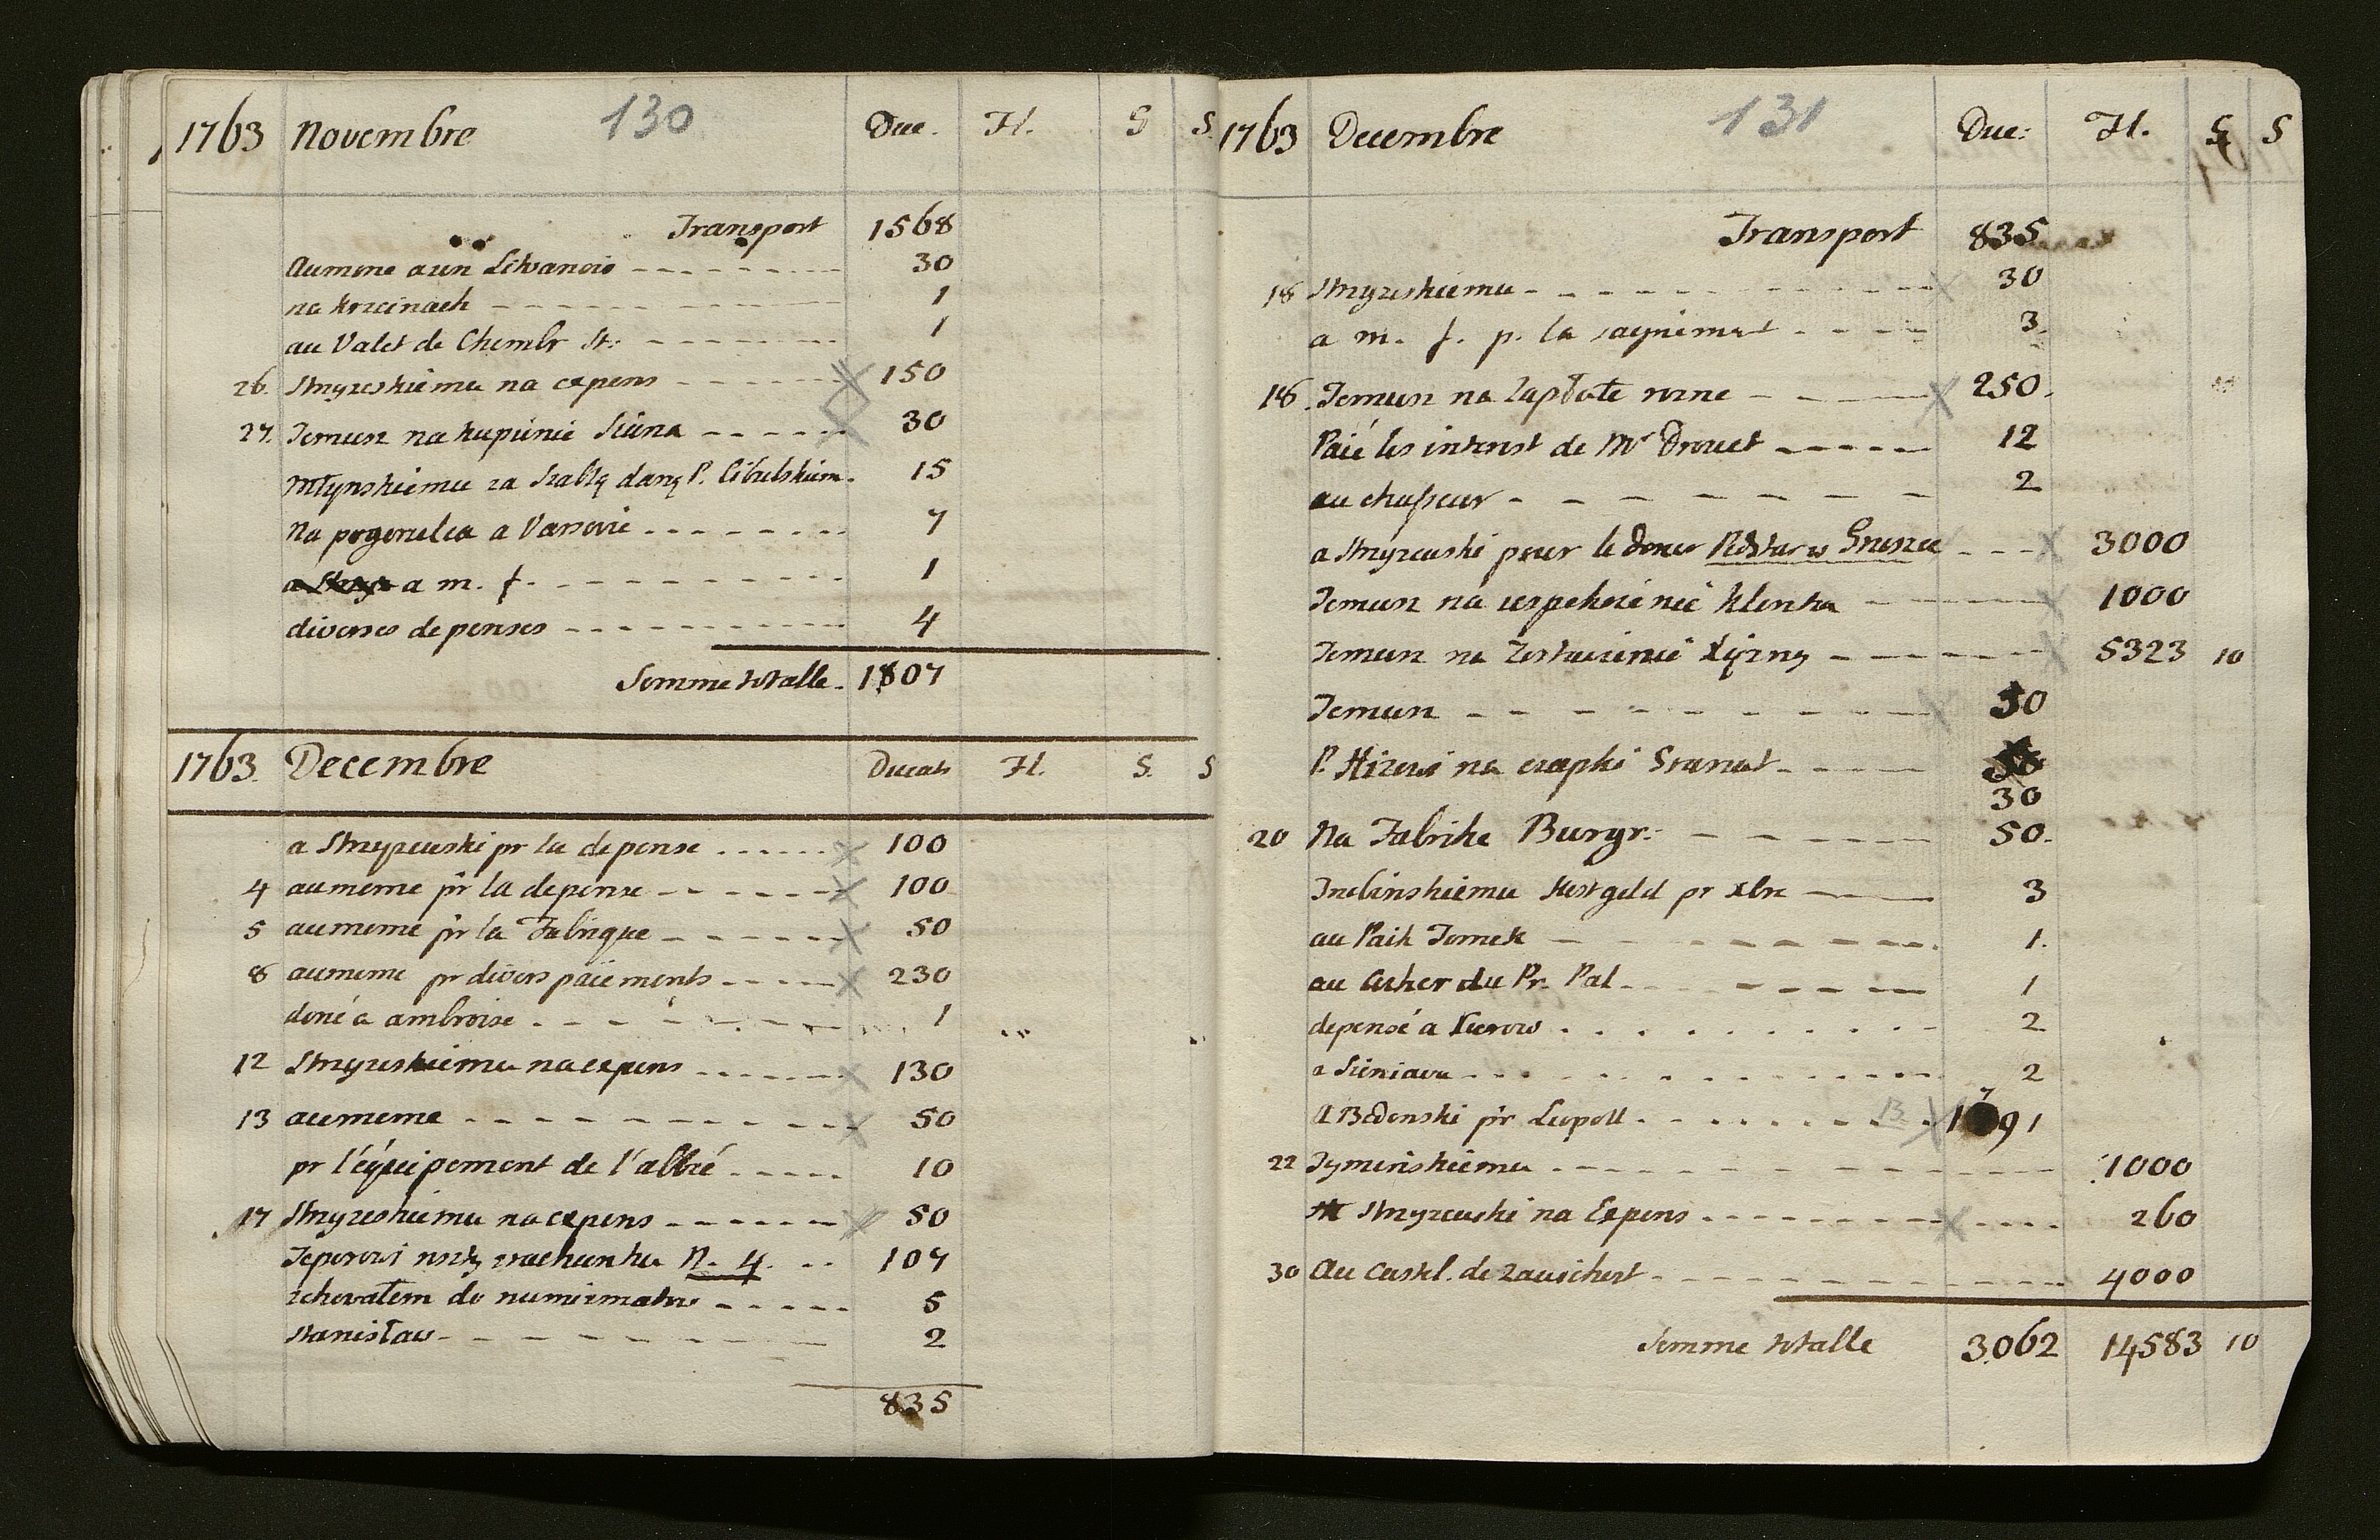 130
1763 Novembre Duc. Fl. G S.
Transport 1568
Aumone a un Litvanois 30
na krzcinach 1
au Valet de Chembr St: 1
26. Stryzeskiemu na expens 150
27. Temuz na kupienie Siana 30
Młynskiemu za Szablą daną P. Cibulskiem. 15
Na pogorzelca a Varsovie 7
a m. f. 1
diverses depenses 4
Somme totalle. 1807
1763. Decembre Ducats Fl. S. S
a Stryzewski pr la depense 100
4 au meme pr la depense 100
5 au meme pr la Fabrique 50
8 au meme pr divers paiements 230
doné a ambroise 1
12 Stryzeskiemu na expens 130
13 au meme 50
pr l'équipement de l'abbé 10
17 Stryzeskiemu na expens 50
Teperowi resztę rachunku N. 4. 107
schovałem do numizmatow 5
Stanisław 2
835
131
1763 Decembre Duc: Fl. G S
Transport 835
18 Stryzeskiemu 30
a m. f. p. la 3
18. Temuz na Zapłate rozne 250.
Paié les interest de Mr Drouet 12
au chasseur 2
a Stryzewski pour le doner 3000
Temuz na uspokoienie 1000
Temuz na 5323 10
Temuz 50
P. Hizowi na czapki Granat 30
20 Na Fabrike Burgr: 50.
Trebinskiemu Kostgeld pr xbre 3
au Paik Tomek 1.
au Cocher du Pr. Pal 1
depensé a Kurow 2
a Sieniawa 2
A Bedonski pr Leopoll 13 1791
22 Tyminskiemu 1000
Stryzewski na Expens 260
30 Au Castel. de Zawichost 4000
Somme totalle 3062 14583 10